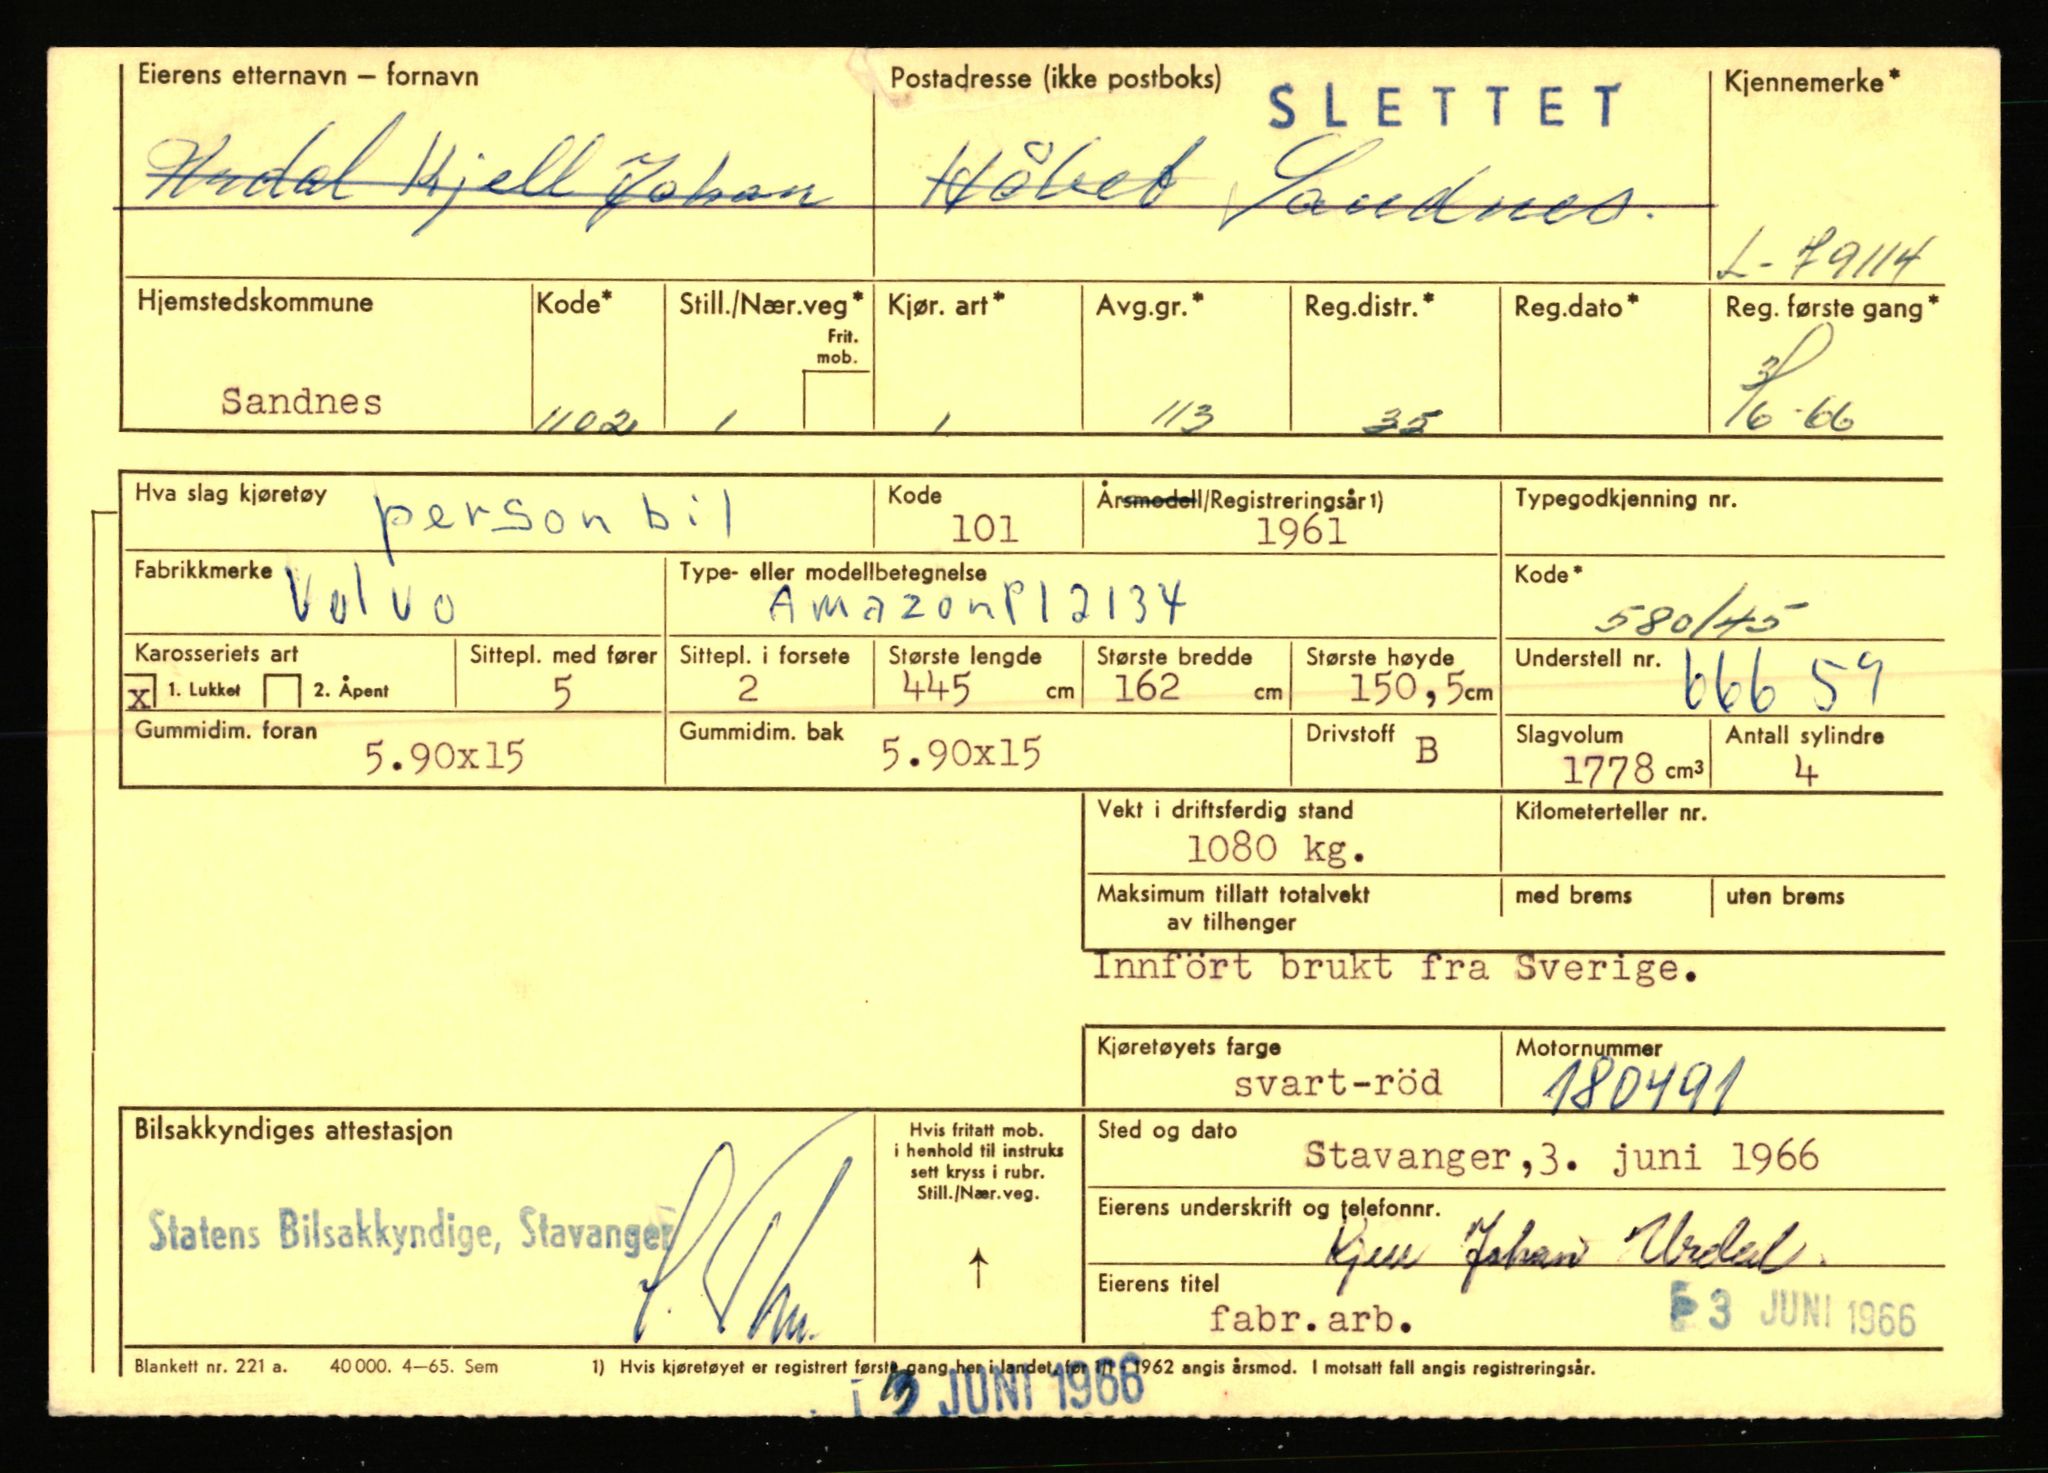 Eierens etternavn – fornavn
Postadresse (ikke postboks)
SLETTET
Kjennemerke*
Urdal Kjell Johan
Håbet Sandnes.
L-79114
Hjemstedskommune
Kode*
Still./Nær.veg*
Kjør. art*
Avg.gr.*
Reg.distr.*
Reg.dato*
Reg. første gang*
Frit.
mob.
Sandnes
1102
1
1
113
35
3/6-66
Hva slag kjøretøy
personbil
Kode
101
Årsmodell/Registreringsår 1)
1961
Typegodkjenning nr.
Fabrikkmerke
Volvo
Type- eller modellbetegnelse
Amazon P12134
Kode*
580/45
Karosseriets art
x 1. Lukket 2. Åpent
Sittepl. med fører
5
Sittepl. i forsete
2
Største lengde
445 cm
Største bredde
162 cm
Største høyde
150,5cm
Understell nr.
66659
Gummidim. foran
5.90x15
Gummidim. bak
5.90x15
Drivstoff
B
Slagvolum
1778 cm3
Antall sylindre
4
Vekt i driftsferdig stand
1080 kg.
Kilometerteller nr.
Maksimum tillatt totalvekt
av tilhenger
med brems
uten brems
Innfört brukt fra Sverige.
Kjøretøyets farge
svart-röd
Motornummer
180491
Bilsakkyndiges attestasjon
Statens Bilsakkyndige, Stavanger
Hvis fritatt mob.
i henhold til instruks
sett kryss i rubr.
Still./Nær.veg.
Sted og dato
Stavanger,3. juni 1966
Eierens underskrift og telefonnr.
Kjell Johan Urdal.
Eierens titel
fabr.arb.
3 JUNI 1966
Blankett nr. 221 a. 40 000. 4–65. Sem
1) Hvis kjøretøyet er registrert første gang her i landet før 1/1 - 1962 angis årsmod. I motsatt fall angis registreringsår.
3 JUNI 1966